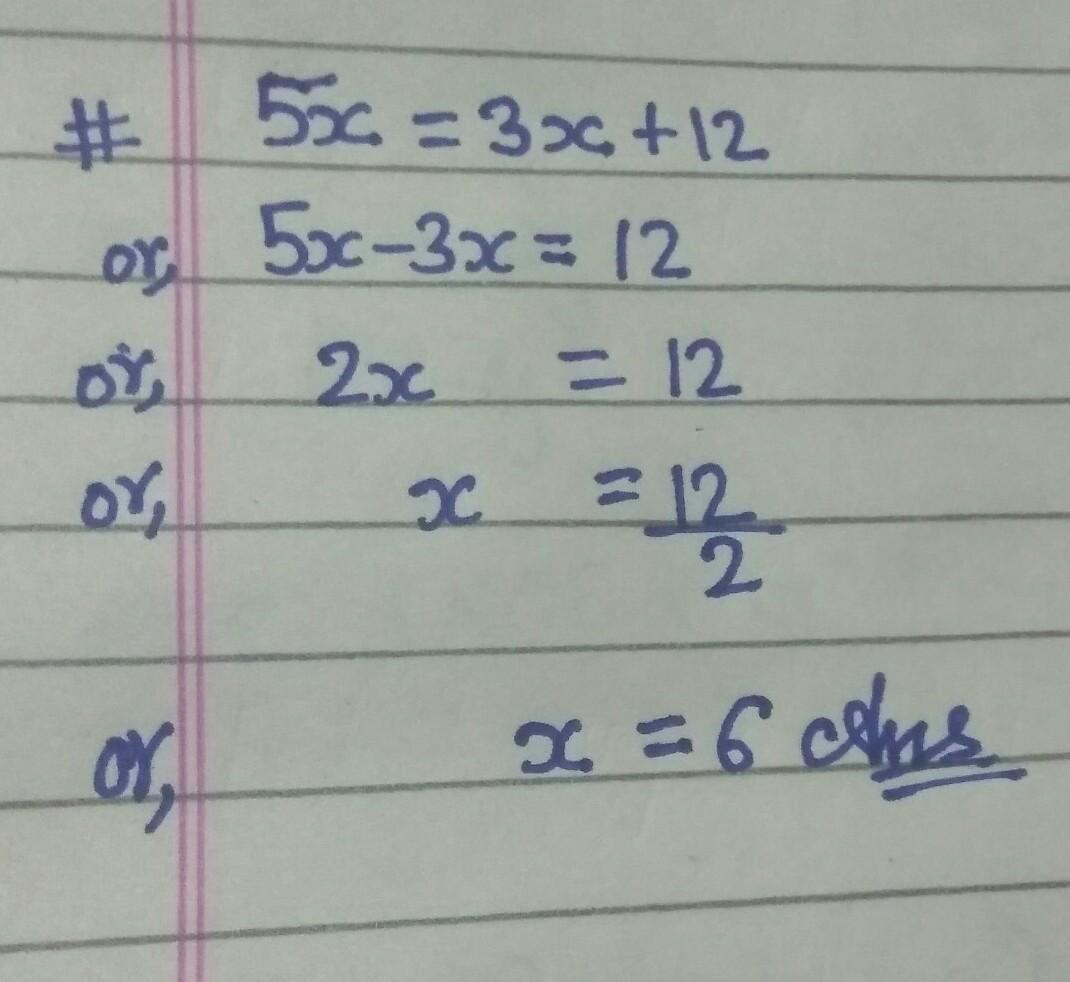 # 5x = 3x + 12
or, 5x - 3x = 12
or, 2x = 12
or, x = 12/2
or, x = 6 Ans